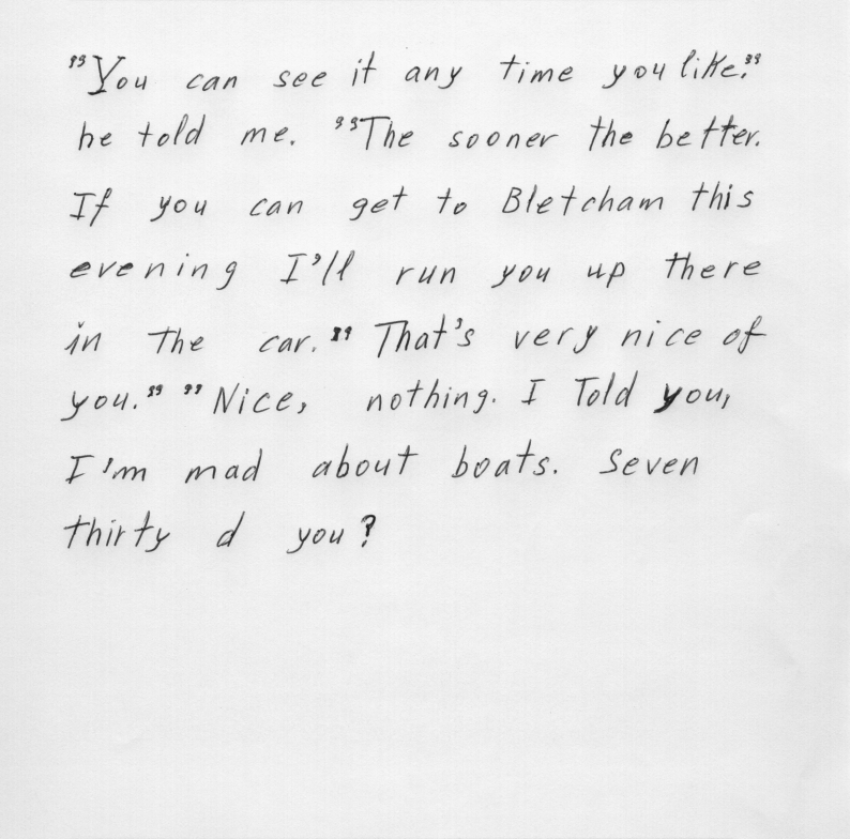 "You can see it any time you like."
he told me. "The sooner the better.
If you can get to Bletcham this
evening I'll run you up there
in the car." That's very nice of
you." "Nice, nothing. I Told you,
I'm mad about boats. Seven
thirty d you?